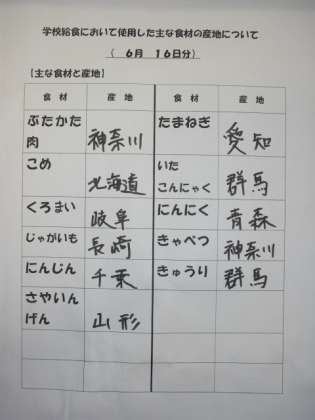 学校給食において使用した主な食材の産地について
（　6月　16日分）
【主な食材と産地】
食材　産地　食材　産地
ぶたかた肉　神奈川　たまねぎ　愛知
こめ　北海道　いたこんにゃく　群馬
くろまい　岐阜　にんにく　青森
じゃがいも　長崎　きゃべつ　神奈川
にんじん　千葉　きゅうり　群馬
さやいんげん　山形